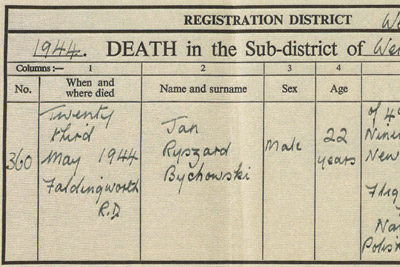 REGISTRATION DISTRICT
1944. DEATH in the Sub-district of
Columns:— 1 2 3 4
No. When and where died Name and surname Sex Age
360
Twenty
third
May 1944
Faldingworth
R.D
Jan
Ryszard
Bychowski
Male
22
years